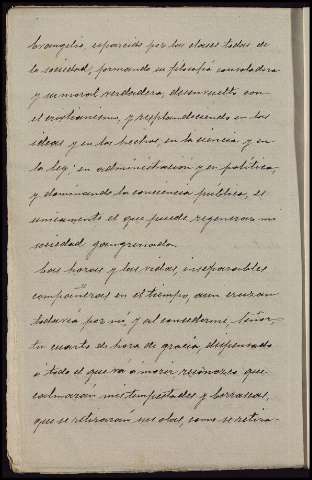 Evangelio, esparcido por las clases todas de
la sociedad, formando su filosofía consoladora
y su moral verdadera, desenvuelto con
el cristianismo, y resplandeciendo en las
ideas y en los hechos, en la ciencia y en
la ley: en administración y en política,
y dominando la conciencia pública, es
unicamente el que puede regenerar mi
sociedad gangrenada.
Las horas y las vidas, inseparables
compañeras en el tiempo, aun cruzan
todavía por mí, y al concederme, Señor,
tu cuarto de hora de gracia, dispensado
á todo el que vá á morir reconozco que
calmarán mis tempestades y borrascas,
que se retirarán mis olas, como se retira-